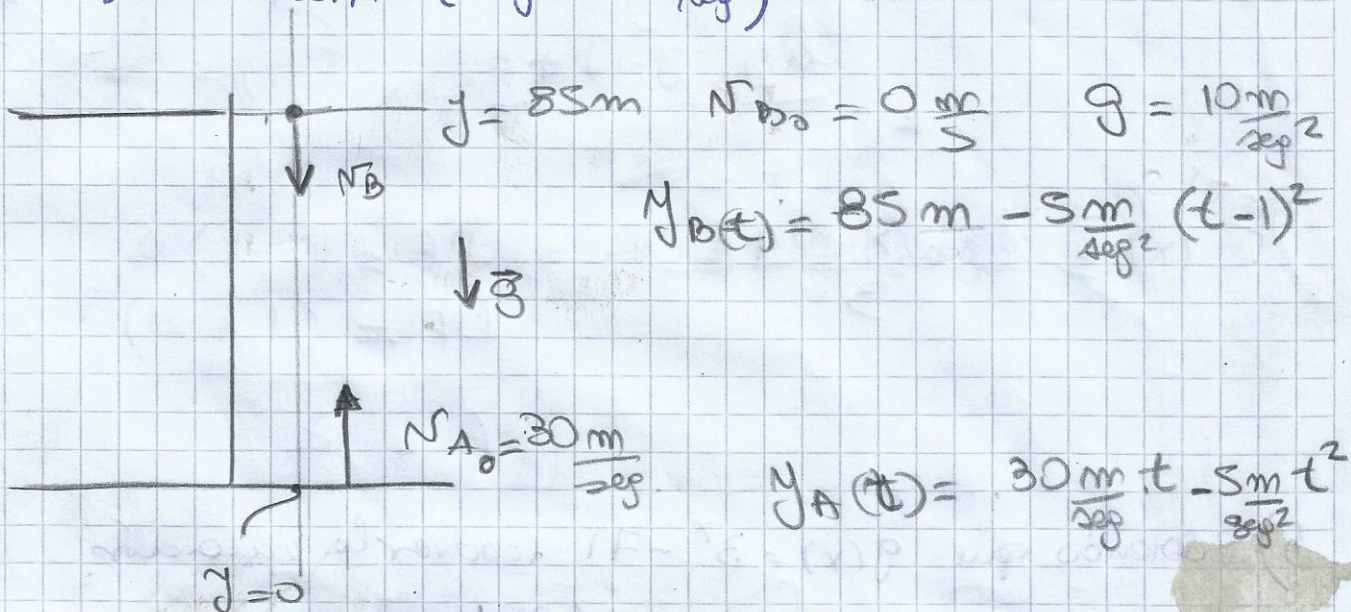 y = 85m v_B₀ = 0 m/s g = 10 m/seg²
v_B
y_B(t) = 85 m - 5 m/seg² (t-1)²
g⃗
v_A₀ = 30 m/seg
y_A(t) = 30 m/seg t - 5 m/seg² t²
y = 0